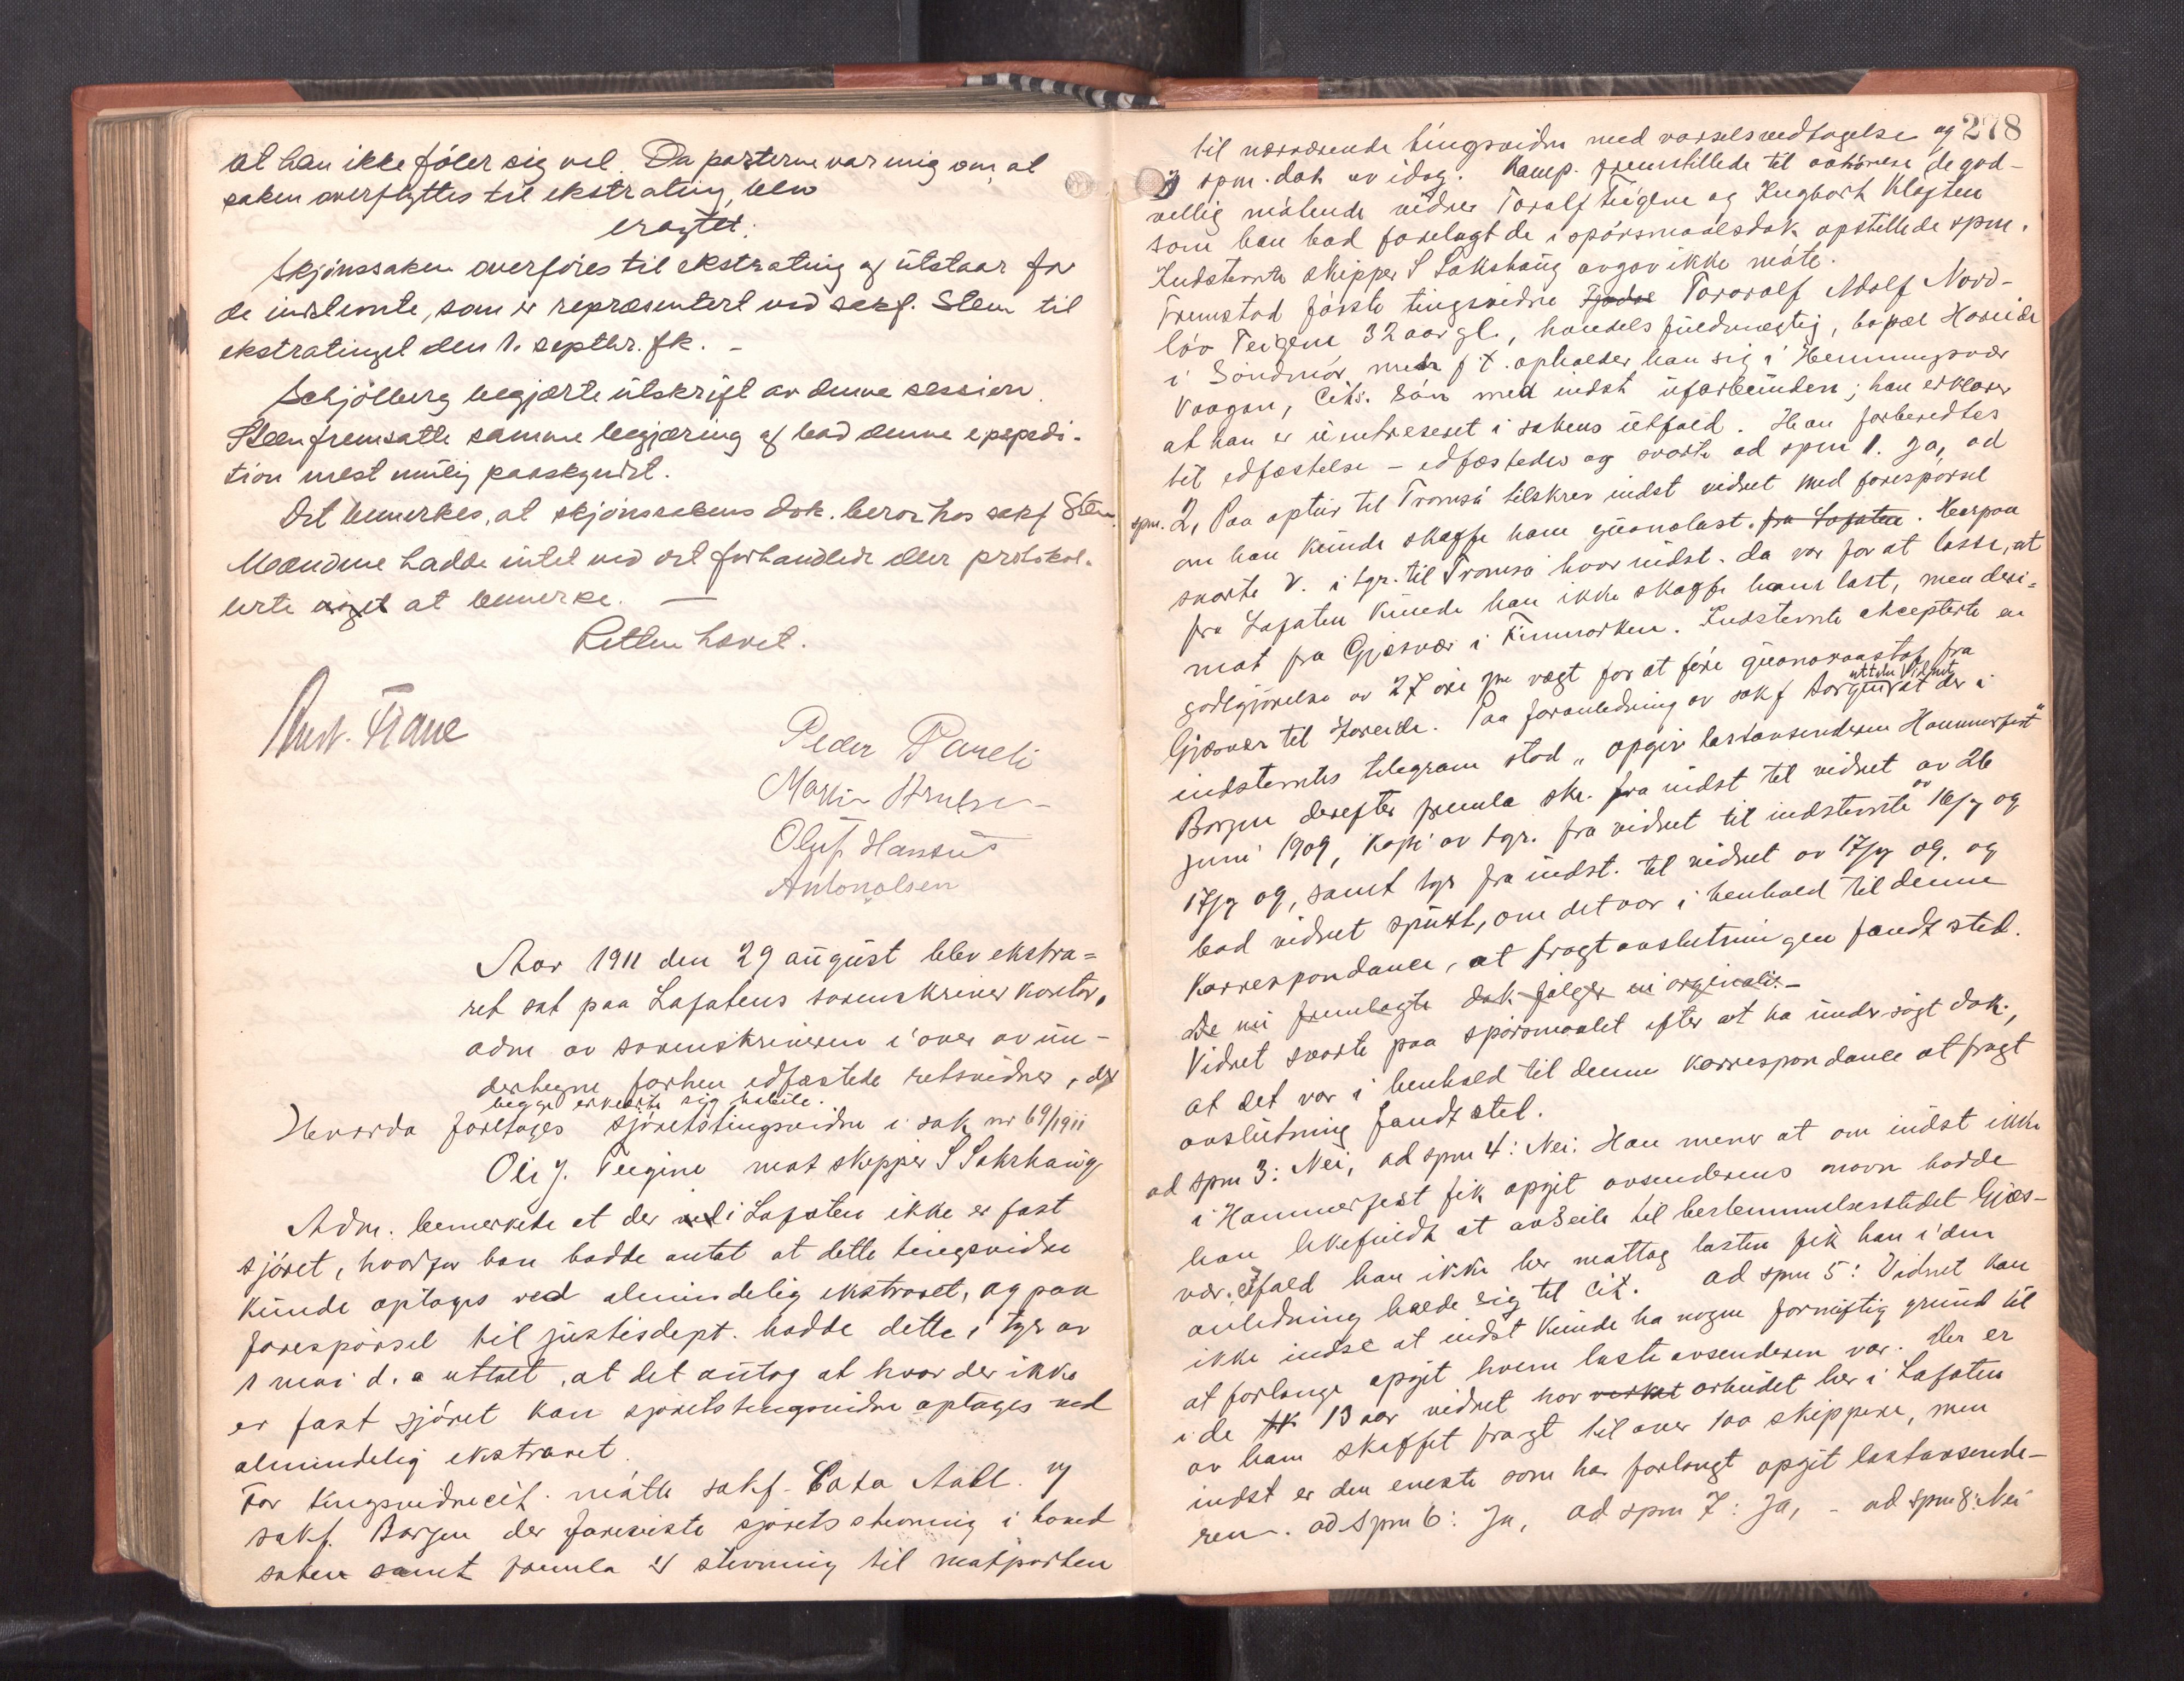 at han ikke föler sig vel. Da parterne var enig om, at
saken overflyttes til ekstrating, blev
eragtet:
Skjönssaken overföres til ekstrating og utstaar for
de instevnte, som er repræsentert ved sakf. Steen til
ekstratinget den 1. septbr. fk. –
Schjölberg begjærte utskrift av denne session.
Steen fremsatte samme begjæring og bad denne expedi-
tion mest mulig paaskyndt.
Det bemerkes, at skjönssakens dok. beror hos sakf Steen.
Mændene hadde intet ved det forhandlede eller protokol-
lerte at bemerke. —
Retten hævet.
Peder Pareli
Olüf Hansen
Anton olsen
Aar 1911 den 29 august blev ekstra=
ret sat paa Lofotens sorenskriver kontor,
adm av sorenskriveren i over av un-
dertegne forhen edfæstede retsvidner, der
begge erklærte sig habile.
Hvorda foretoges sjöretstingsvidne i sak nr 69/1911
Ole J. Teigene mot skipper S Sakshaug
Adm. bemerkede at der i Lofoten ikke er fast
sjöret, hvorfor han hadde antat at dette tingsvidne
kunde optages ved almindelig ekstraret, og paa
forespörsel til justisdept. hadde dette i tgr av
1 mai d. a uttalt, at det antog at hvor der ikke
er fast sjöret kan sjöretstingsvidne optages ved
almindelig ekstraret.
For tingsvidnecit. mötte sakf. Aall. v/
sakf. Borgen der foreviste sjörets stevning i hoved
saken samt fremla stevning til motparten
278
til nærværende tingsvidne med varselsvedtagelse og
spm. dok av idag. Komp. fremstillede til avhörelse de god-
villig mötende vidner Toralf Teigene og Ingbart Klogten
som han bad forelagt de i spörsmaalsdok opstillede spm.
Indstevnte skipper S Sakshaug avgav ikke möte.
Fremstod förste tingsvidne Toraralf Adolf Nord-
löv Teigene 32 aar gl., handels fuldmegtig, bopæl Hareide
i Söndmör, men f. t. opholder han sig i Henningsvær
Vaagan, Cits. sön med indst ubeslegtet; han erklærer
at han er uintreseret i sakens utfald. Han forberedtes
til edfæstelse – edfæstedes og svarte ad spm 1. Ja, ad
spm. 2, Paa optur til Tromsö tilskrev indst vidnet med forespörsel
om han kunde skaffe ham guanolast. fra Lofoten. Herpaa
svarte V. i tgr. til Tromsö hvor indst. da var for at losse, at
fra Lofoten kunde han ikke skaffe ham last, men deri=
mot fra Gjesvær i Finmarken. Indstevnte akcepterte en
godtgjörelse av 27 öre pr vægt for at före guanoraastof fra
Gjesvær til Hareide. Paa foranledning av sakf Borgen uttaler Vidnet at der i
indstevntes telegram stod „ opgiv lastavsenderen Hammerfest"
Borgen derefter fremla skr. fra indst til vidnet av 26
juni 1909, kopi av tgr. fra vidnet til indstevnte av 16/7 og
17/7 09, samt tgr fra indst. til vidnet av 17/7 09. og
bad vidnet spurt, om det var i henhold til denne
korrespondance, at fragtavslutningen fandt sted.
De nu fremlagte dok fölger in orginalis. –
Vidnet svarte paa spörsmaalet efter at ha undersögt dok.,
at det var i henhold til denne korrespondance at fragt
avslutning fandt sted.
ad spm 3: Nei, ad spm 4: Nei. Han mener at om indst ikke
i Hammerfest fik opgit avsenderens navn hadde
han likefuldt at avseile til bestemmelsesstedet Gjes-
vær. Ifald han ikke her mottog lasten fik han i den
anledning holde sig til Cit. ad spm 5: Vidnet kan
ikke indse at indst kunde ha nogen fornuftig grund til
at forlange opgit hvem lastavsenderen var. Der er
i de 13 aar vidnet har virket arbeidet her i Lofoten
av ham skaffet fragt til over 100 skippere, men
indst er den eneste som har forlangt opgit lastavsende-
ren. ad spm 6: Ja, ad spm 7: Ja, – ad spm 8: Nei